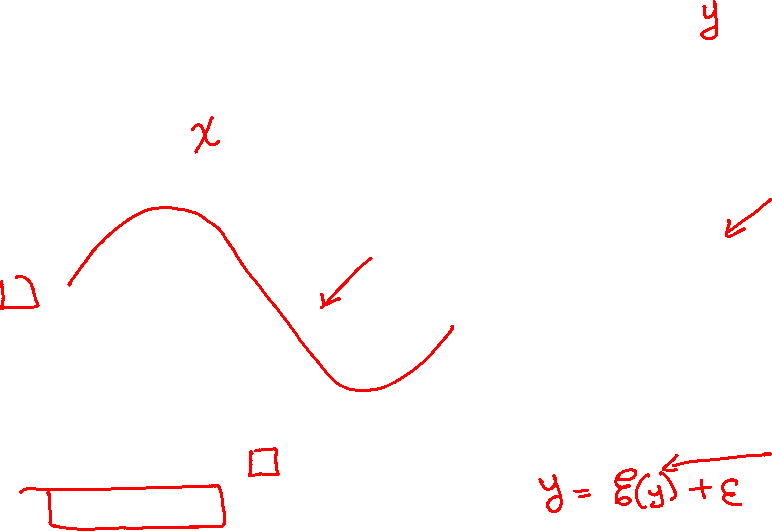 y
x
y = ξ(y) + ε